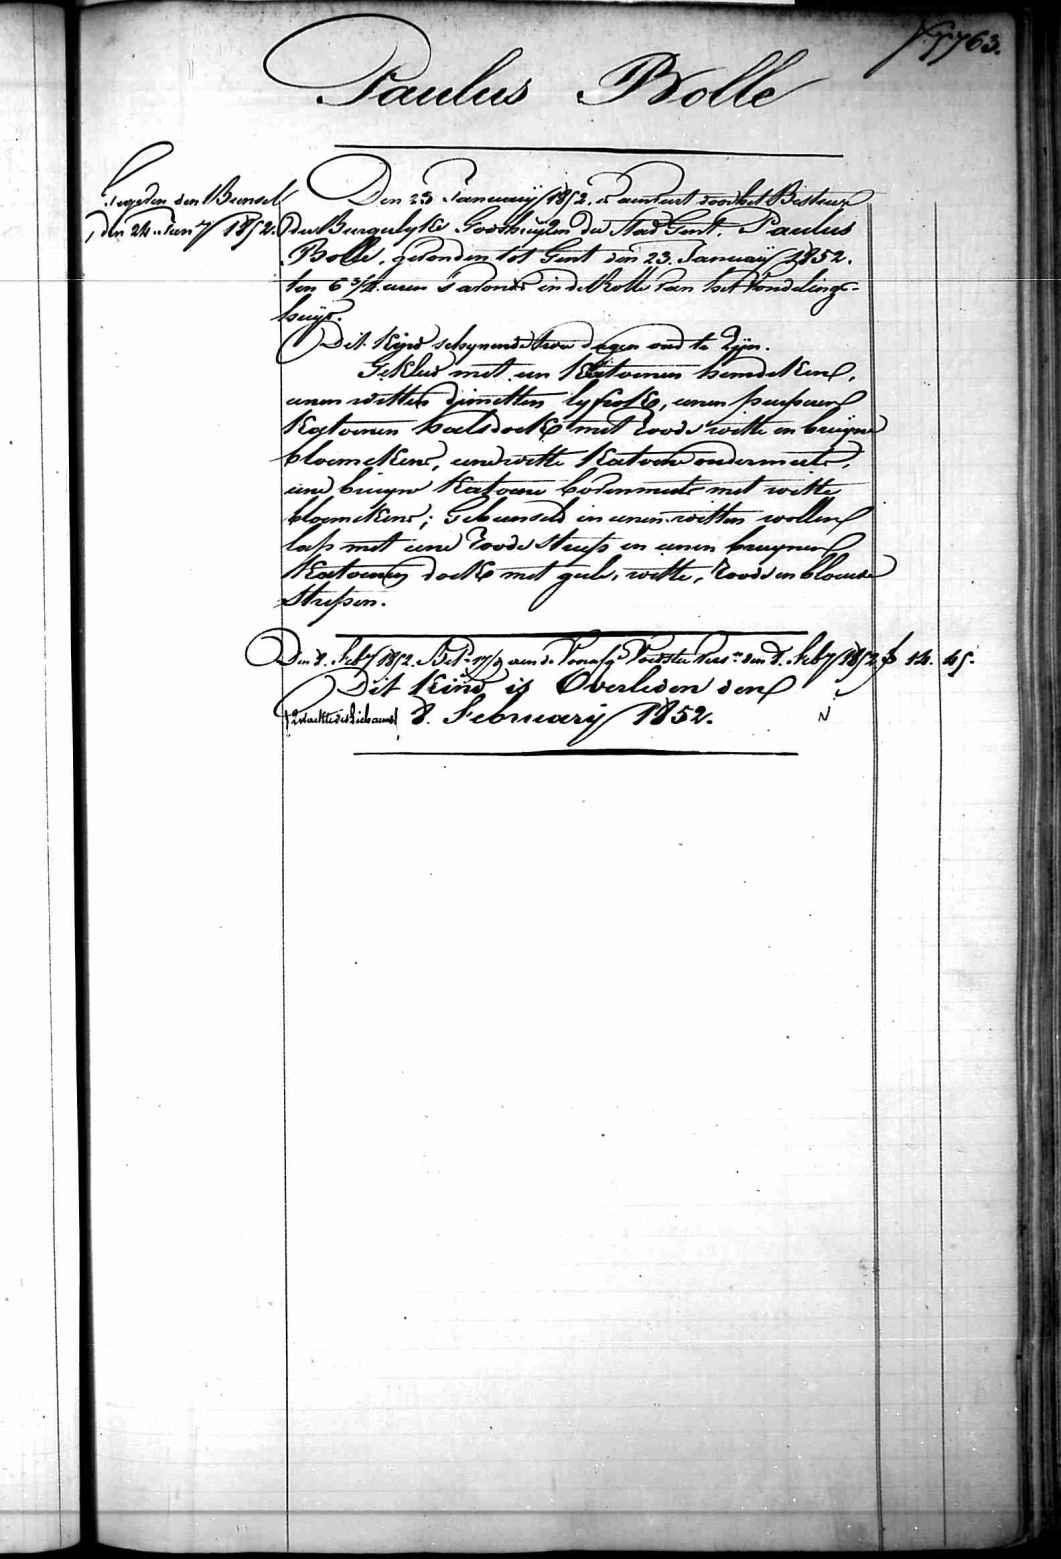 763.
Paulus Bolle
Gegeven den Bunsel
den 24 Jan.y 1852.
Den 23 January 1852. is aenveert door het Bestuer
der Burgelyke Godshuyzen der Stad Gent, Paulus
Bolle, gevonden tot Gent den 23. January 1852.
ten 6 3/4 uren 's avonds in de Rolle van het Vondeling-
huys.
Dit Kind schynende twee dagen oud te zyn.
Gekleed met een Katoenen hemdeken,
eenen witten dimitten lyfrok, eenen purperen
Katoenen halsdoek met roode witte en bruyne
bloemekens, eene witte Katoene ondermuts,
eene bruyne Katoene bovenmuts met witte
bloemekens; Gebunseld in eenen witten wollen
lap met eene roode streep en eenen bruynen
Katoenen doek met gele, witte, roode en blauwe
strepen.
Den 8. Feb.y 1852. Bet. 17/9 aen de Voedster den 8. Feb.y 1852. f 14. 45.
Dit Kind is Overleden den
8. February 1852.